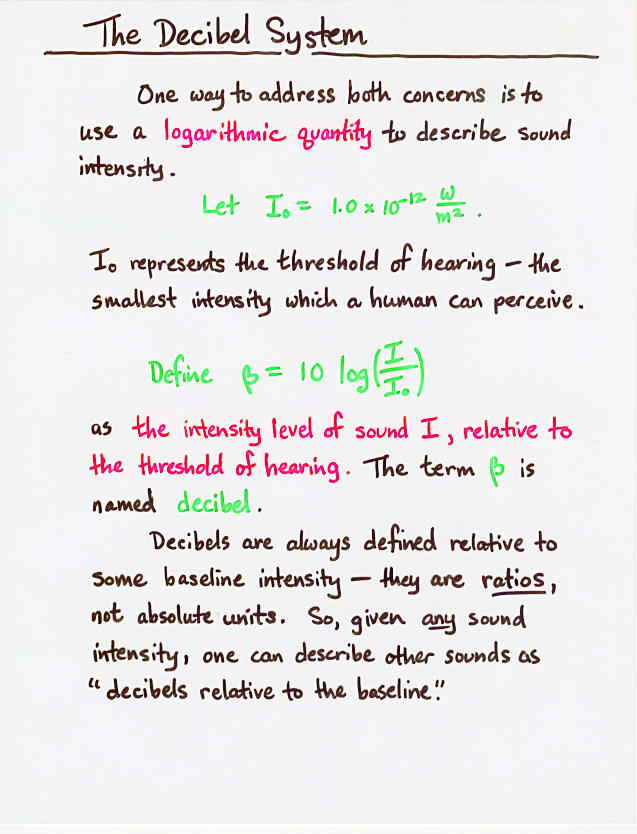 The Decibel System
One way to address both concerns is to
use a logarithmic quantity to describe sound
intensity.
Let I₀ = 1.0 x 10⁻¹² W/m² .
I₀ represents the threshold of hearing – the
smallest intensity which a human can perceive.
Define β = 10 log(I/I₀)
as the intensity level of sound I, relative to
the threshold of hearing. The term β is
named decibel.
Decibels are always defined relative to
some baseline intensity – they are ratios,
not absolute units. So, given any sound
intensity, one can describe other sounds as
"decibels relative to the baseline."